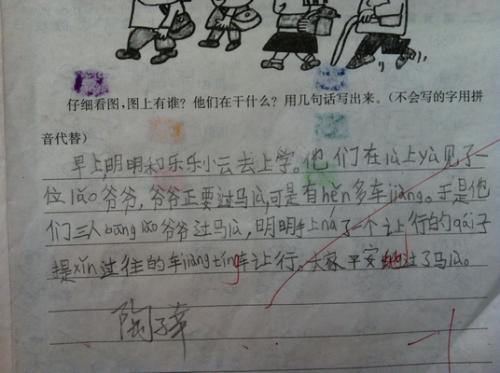 仔细看图,图上有谁?他们在干什么?用几句话写出来。(不会写的字用拼
音代替)
早上,明明和乐乐小云去上学。他们在lù上yù见了一
位lǎo爷爷,爷爷正要过马lù,可是有hěn多车jiang。于是他
们三人bāng lǎo爷爷过马lù,明明手上ná了一个让行的pái子
提xǐn过往的车jiang tíng车让行。大家平安 过了马lù。
陶